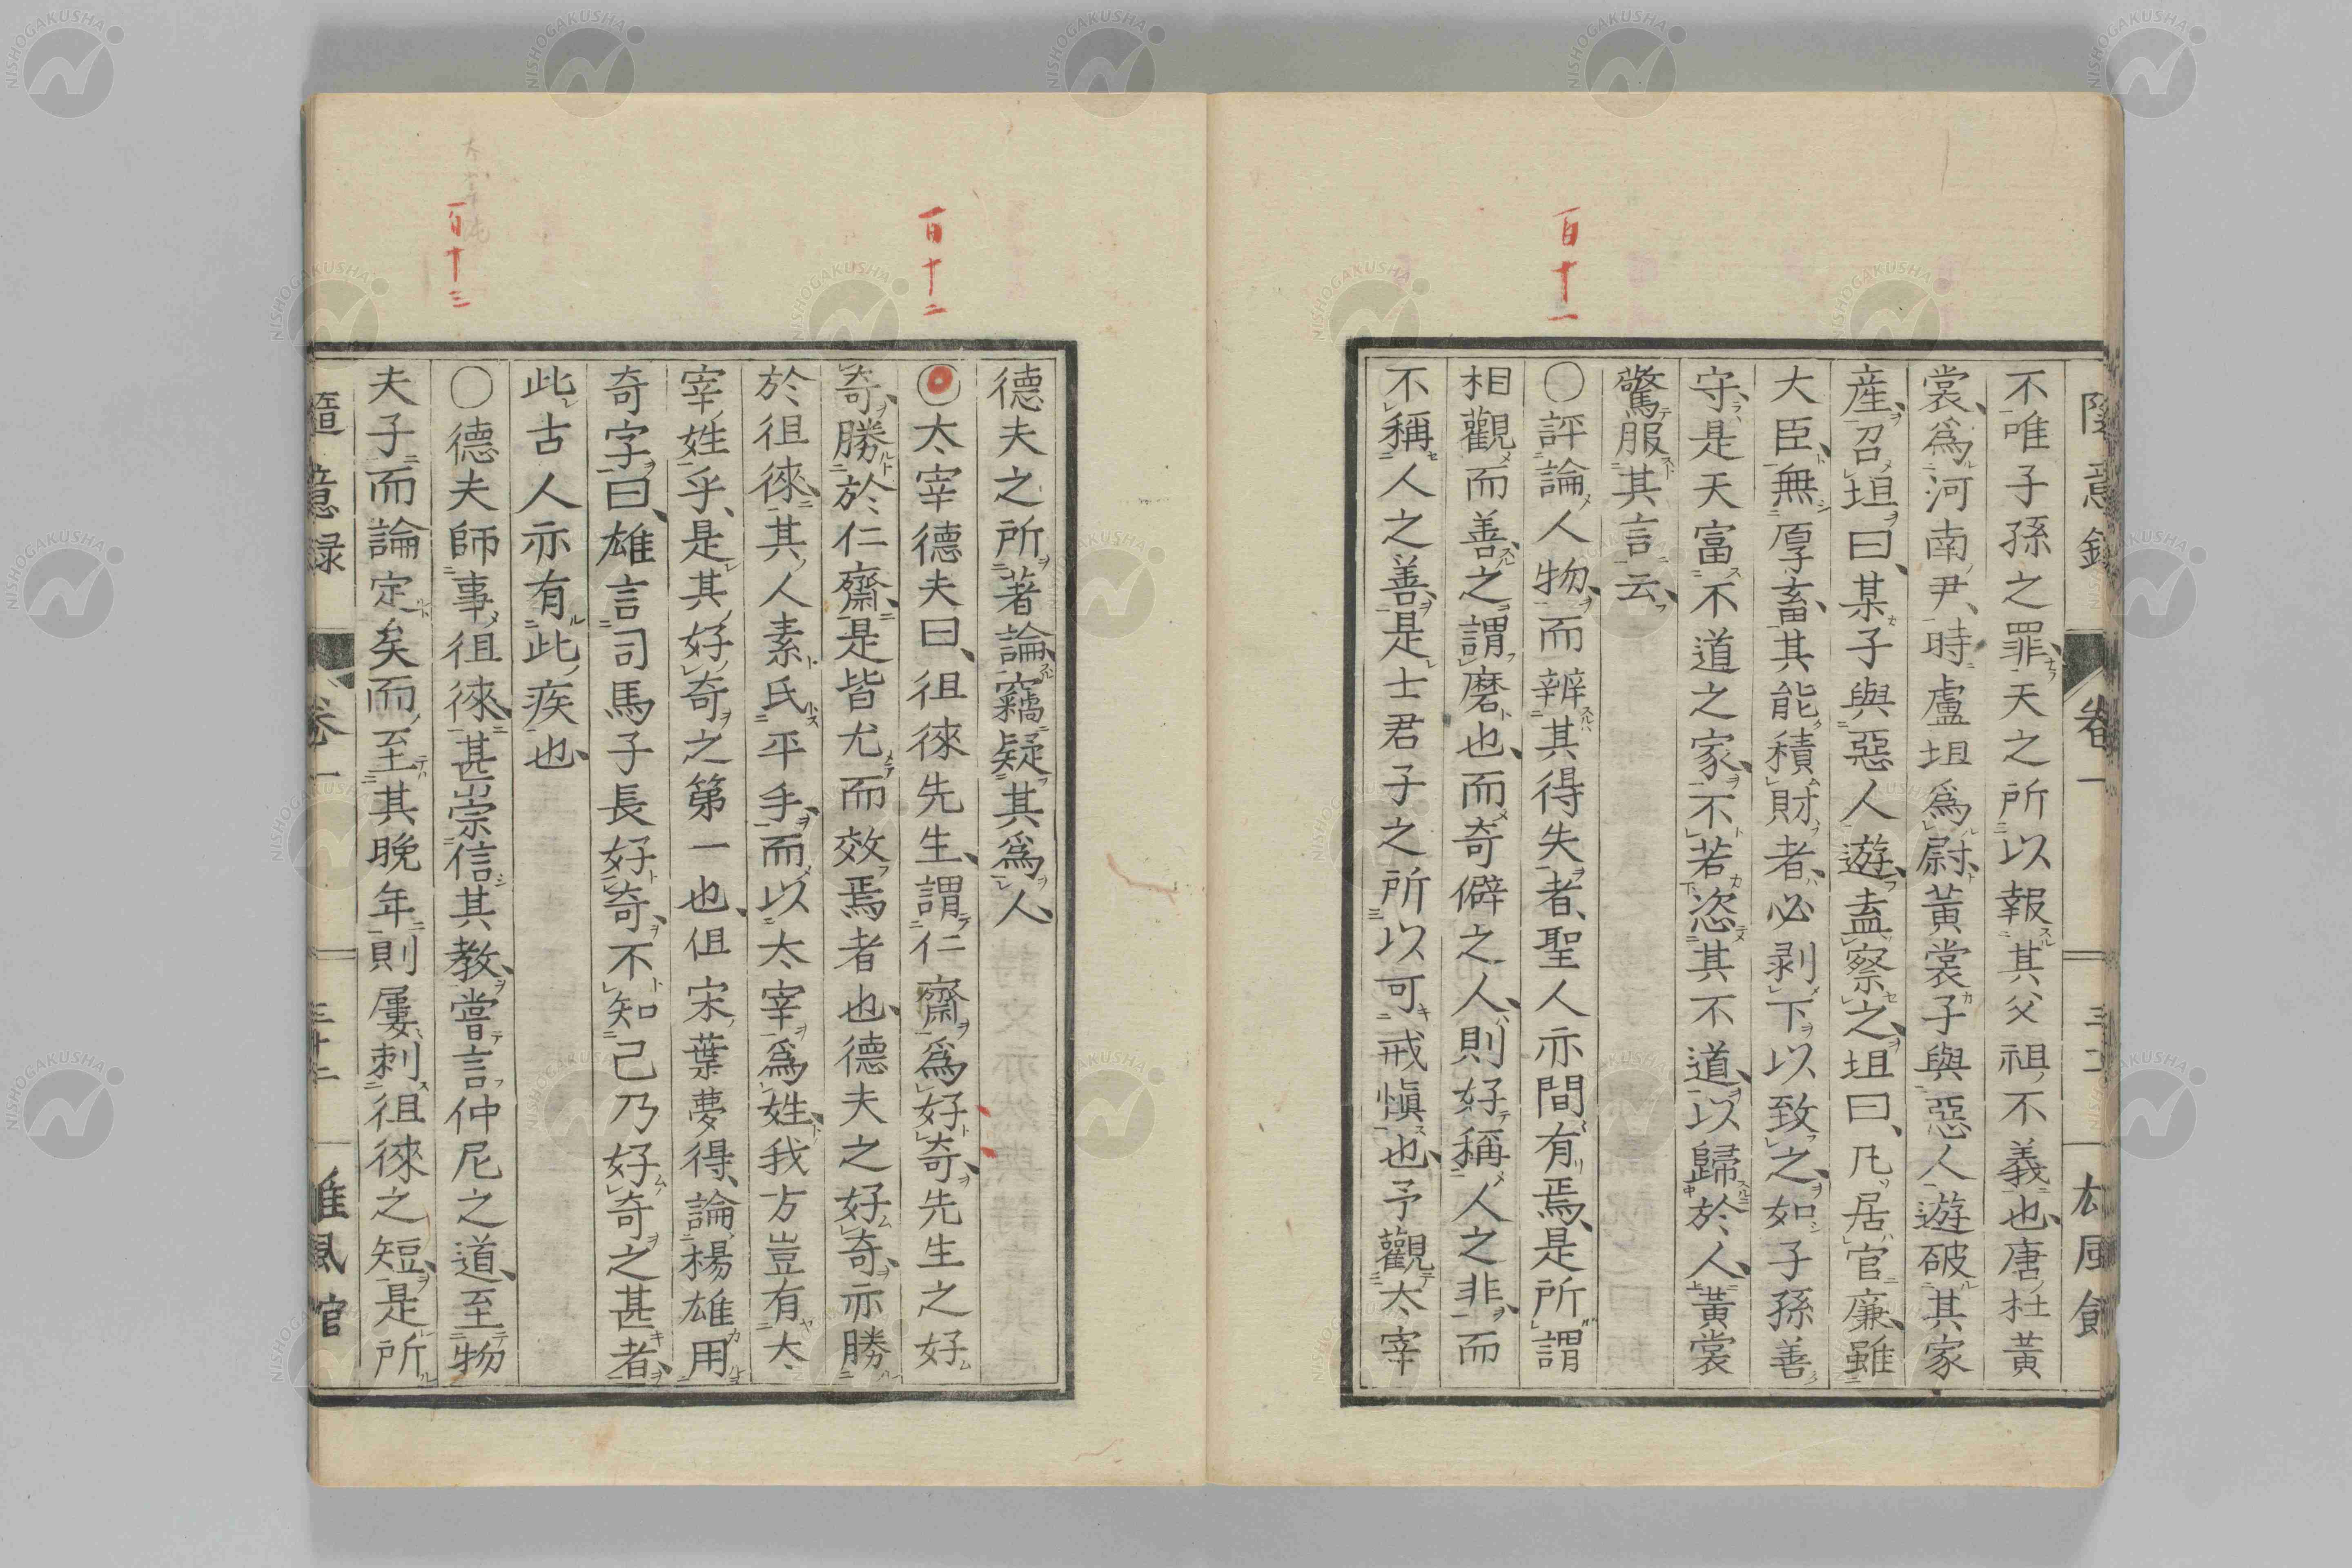 百十一
隨意録　卷一
不唯子孫之罪、天之所以報其父祖不義也、唐杜黃
裳、爲河南尹、時盧坦爲尉、黃裳子與惡人遊破其家
産、召坦曰、某子與惡人遊、盍察之、坦曰、凡居官廉、雖
大臣、無厚畜、其能積財者、必剥下以致之、如子孫善
守、是天富不道之家、不若恣其不道、以歸於人、黃裳
驚服其言云、
〇評論人物、而辨其得失者、聖人亦間有焉、是所謂
相觀而善、之謂磨也、而奇僻之人、則好稱人之非、而
不稱人之善、是士君子之所以可戒愼也、予觀太宰
百十二
百十三
德夫之所著論、竊疑其爲人、
〇太宰德夫曰、徂徠先生、謂仁齋爲好奇、先生之好
奇、勝於仁齋、是皆尤而效焉者也、德夫之好奇、亦勝
於徂徠、其人素氏平手、而以太宰爲姓、我方豈有太
宰姓乎、是其好奇之第一也、但宋葉夢得、論楊雄用
奇字曰、雄言司馬子長好奇、不知己乃好奇之甚者、
此古人亦有此疾也、
〇德夫師事徂徠、甚崇信其教、嘗言仲尼之道、至物
夫子而論定矣、而至其晩年、則屢刺徂徠之短、是所
隨意録　卷一